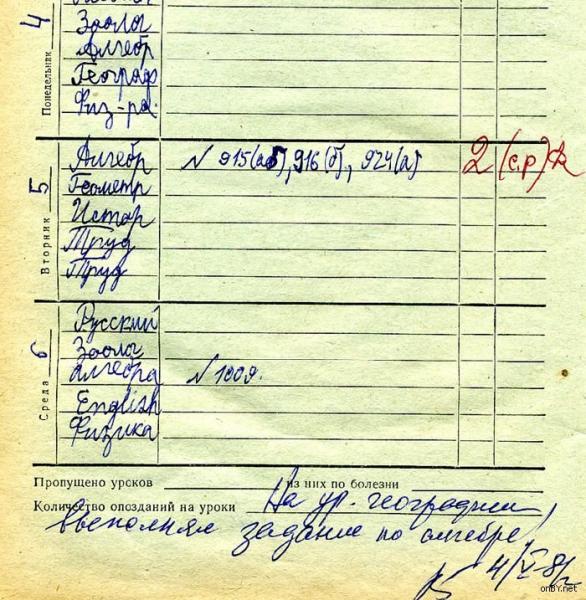 4
Понедельник
Зоолог
Алгебр
Географ
Физ-ра
5
Вторник
Алгебр № 915(аб), 916(б), 924(а) 2 (с.р)
Геометр
Истор
Труд
Труд
6
Среда
Русский
Зоолог
Алгебра № 1009.
English
Физика
Пропущено уроков из них по болезни
Количество опозданий на уроки На ур. географии
выполнял задание по алгебре!
4/V-8
onBY.net